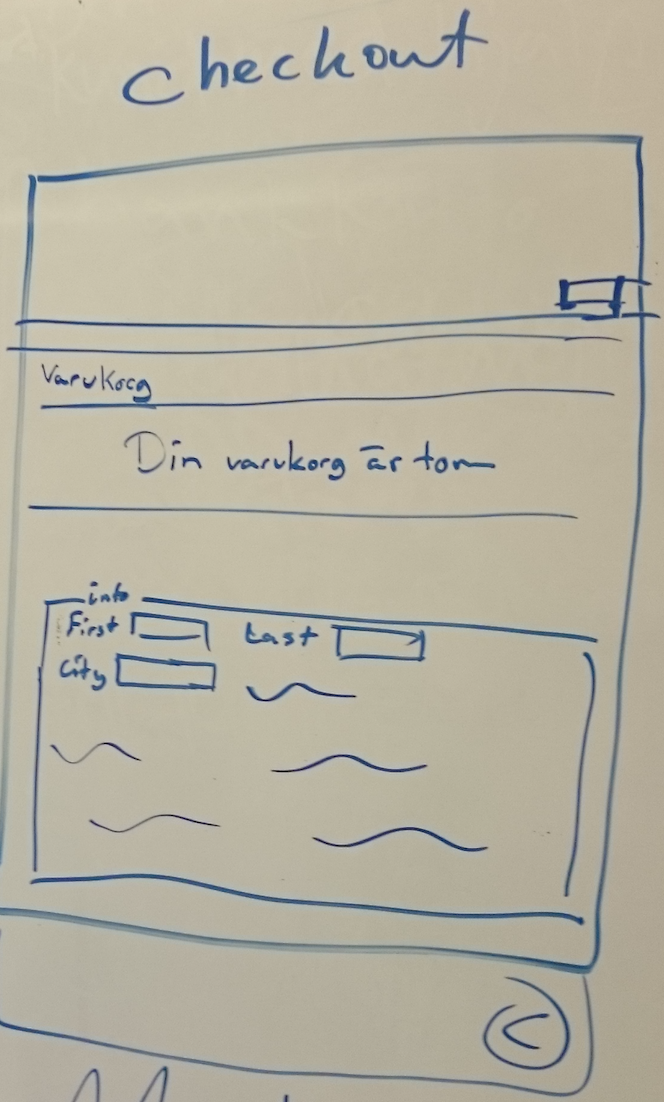 checkout
Varukorg
Din varukorg är tom
info
First Last
City